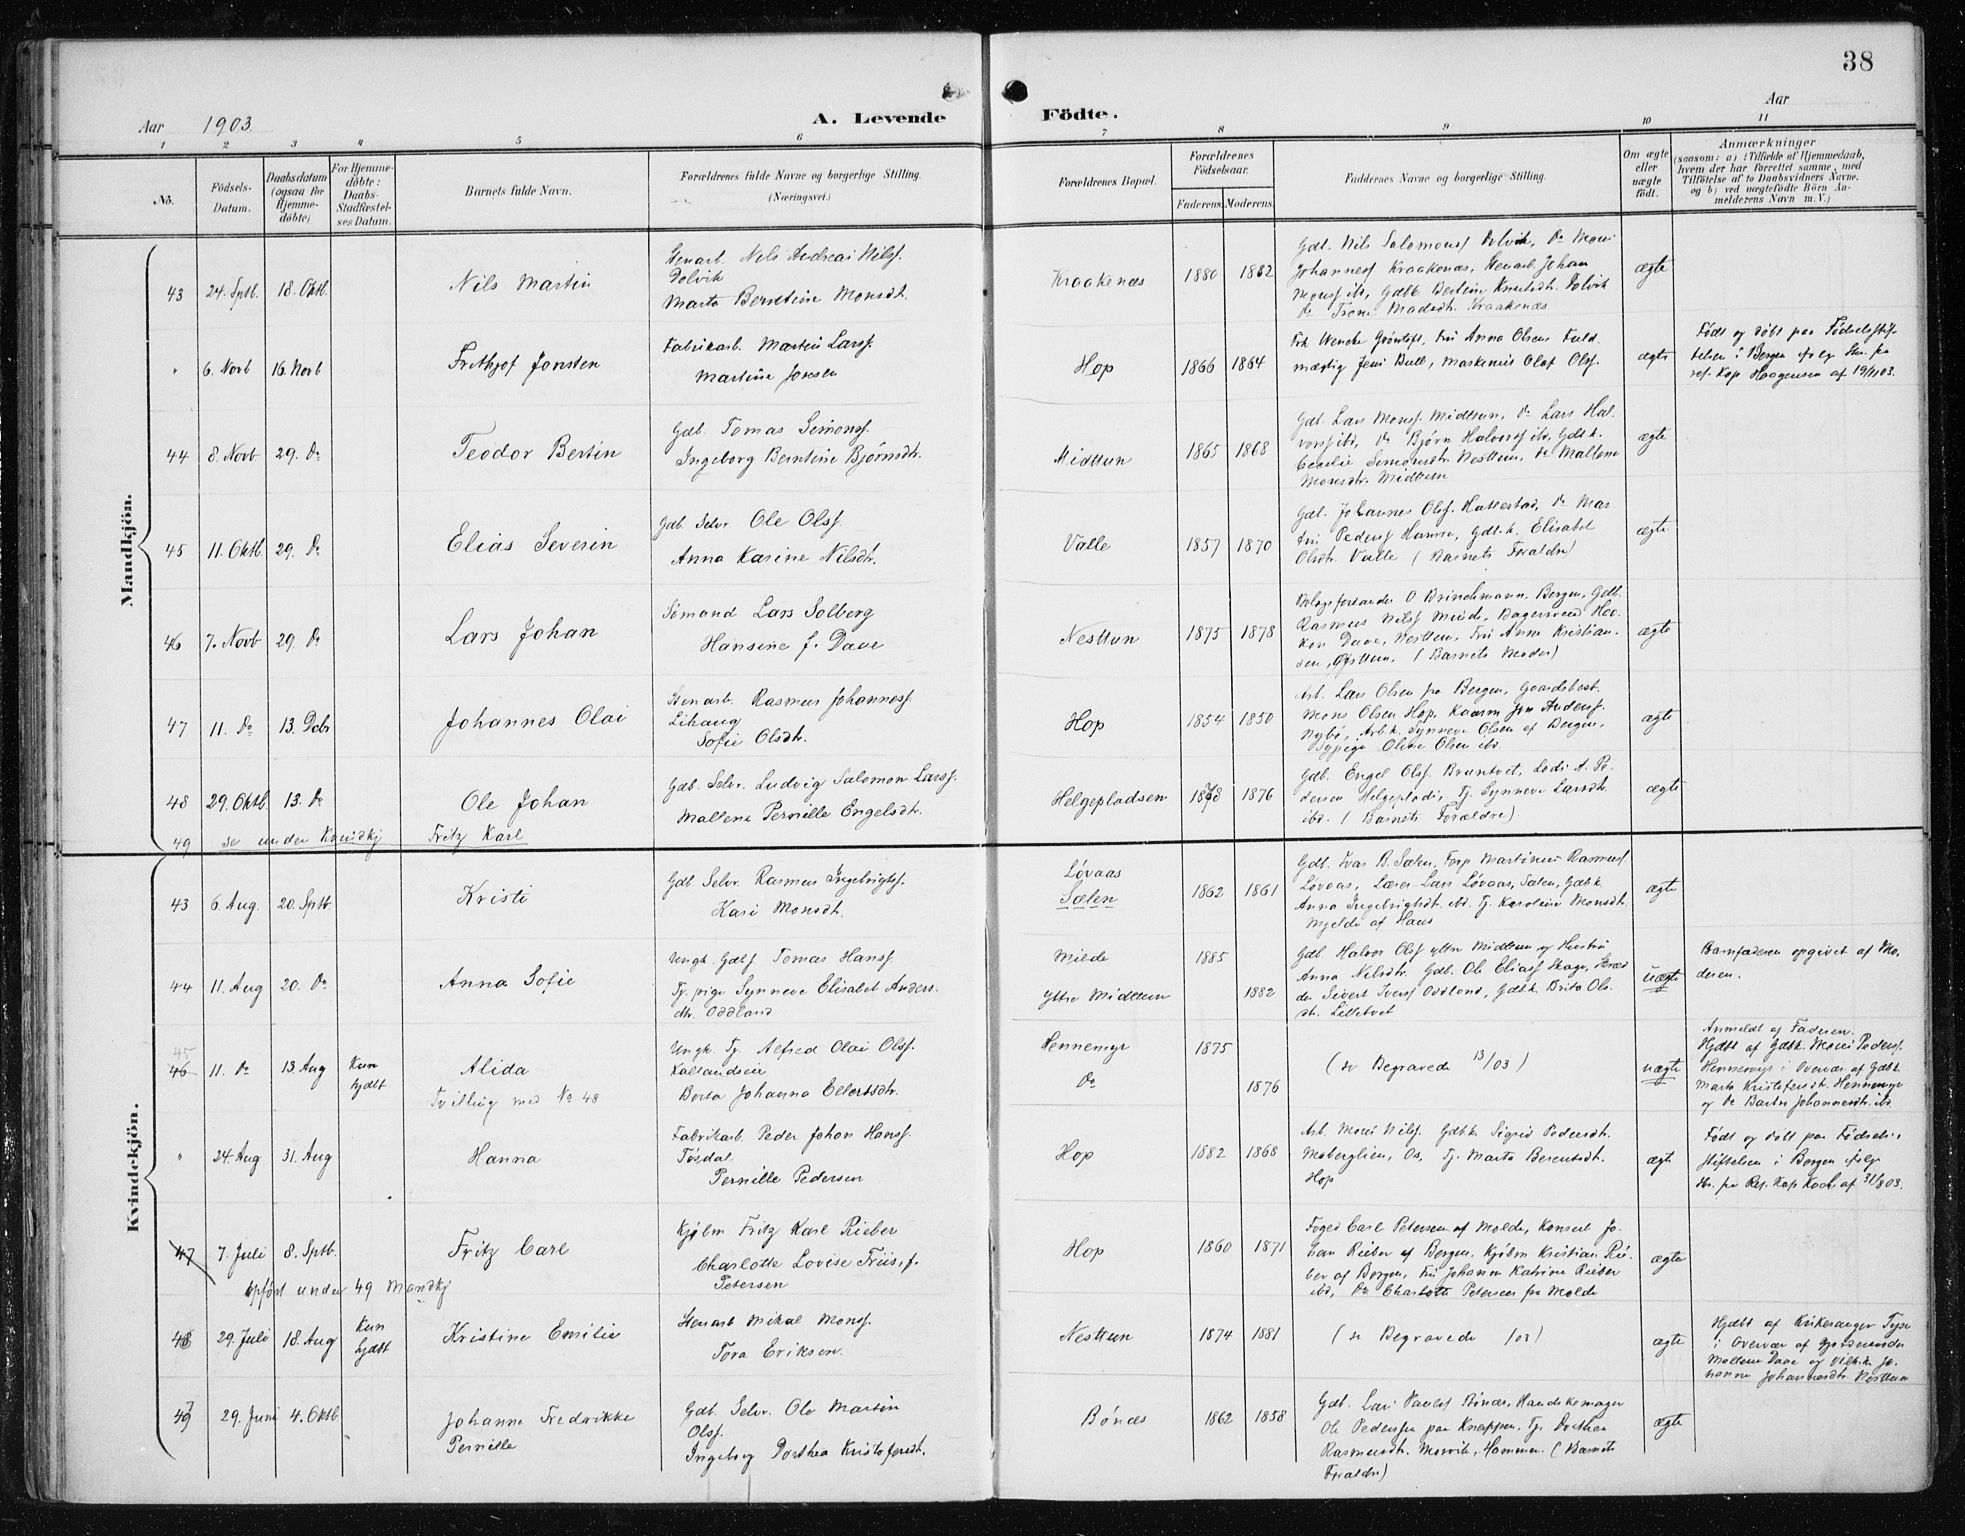 38
Aar 1903.
A. Levende Födte.
Aar
1 2 3 4 5 6 7 8 9 10 11
No.
Födsels-Datum.
Daabsdatum (ogsaa for Hjemme-döbte)
For Hjemme-döbte: Daabs-Stadfæstel-ses Datum.
Barnets fulde Navn.
Forældrenes fulde Navne og borgerlige Stilling. (Næringsvei.)
Forældrenes Bopæl.
Forældrenes Födselsaar.
Faderens. Moderens.
Faddernes Navne og borgerlige Stilling.
Om ægte eller uægte födt.
Anmærkninger
(saasom: a) i Tilfælde af Hjemmedaab,
hvem der har forrettet samme, med
Tilföielse af to Daabsvidners Navne,
og b) ved uægtefödte Börn An-
melderens Navn m. V.)
Mandkjön.
43 24. Sptb. 18. Oktb.
Nils Martin
Stenarb. Nils Andreas Nilss.
Dolvik
Marta Berntine Monsdt.
Kraakenæs 1880 1882
Gdb. Nils Salomonss Dolvik, Do Mons
Johanness Kraakenæs, Stenarb. Johan
Monss ibd, Gdbk. Bertine Knutsdt. Dolvik
Do Trone Madsdt. Kraakenæs
ægte
" 6. Novb 16. Novb
Frithjof Jonsten
Fabrikarb. Martin Larss.
Martine Jonsen
Hop 1866 1864
Frk Wencke Grøntoft, Fru Anna Olsen Fuld
mægtig Jens Bull, Maskinist Olaf Olss.
ægte
Født og døbt paa Fødselsstif-
telsen i Bergen ifølg Skr. fra
res. Kap Haagensen af 19/11 03.
44 8. Novb 29. Do
Teodor Bertin
Gdb. Tomas Simonss.
Ingeborg Berntine Bjørnsdt.
Midttun 1865 1868
Gdb. Lars Monss. Midttun, Do Lars Hal-
vorss ibd, Do Bjørn Halvorss ibd, Gdbk.
Cecilie Simonsdt. Nesttun, Do Mallene
Monsdt. Midttun
ægte
45 11. Oktb. 29. Do
Elias Severin
Gdb. Selvr. Ole Olss.
Anna Karine Nilsdt.
Valle 1857 1870
Gdb. Johannes Olss. Hattestad, Do Mar-
tin Pederss Hamre, Gdbk. Elisabet
Olsdt. Valle (Barnets Forældre)
ægte
46 7. Novb 29. Do
Lars Johan
Sømand Lars Solberg
Hansine f. Daae
Nesttun 1875 1878
O Brinchmann, Bergen, Gdb.
Rasmus Nilss Minde, Bagersvend Haa-
kon Daae, Nesttun, Fru Anna Kristian-
sen, Øvsttun. (Barnets Moder)
ægte
47 11. Do 13. Debr
Johannes Olai
Stenarb. Rasmus Johanness.
Lihaug
Sofie Olsdt.
Hop 1854 1850
Arb. Lars Olsen fra Bergen, Gaardsbest.
Mons Olsen Hop, Kaarm Anderss.
Nybø, Arbk. Synneve Olsen af Bergen,
Sypige Oline Olsen ibd.
ægte
48 29. Oktb 13. Do
Ole Johan
Gdb. Selvr. Ludvig Salomon Larss.
Mallene Pernille Engelsdt.
Helgepladsen 1878 1876
Gdb. Engel Olss. Brantvet, Lods A. Pe-
dersen Helgeplads, Tj. Synneve Larsdt.
ibd. (Barnets Forældre)
ægte
49 se under Kvindkj Fritz Karl
Kvindekjön.
43 6. Aug. 20. Sptb.
Kristi
Gdb Selvr. Rasmus Ingebrigtss.
Kari Monsdt.
Løvaas
Sælen
1862 1861
Gdb. Ivar B. Sælen, Forp Martinus Rasmuss.
Løvaas, Lærer Lars Løvaas, Sælen, Gdbk.
Anna Ingebrigtsdt. ibd. Tj. Karoline Monsdt.
Mjelde af Haus
ægte
44 11. Aug 20. Do
Anna Sofie
Ungk. Gdbs Tomas Hanss.
Tj. pige Synneve Elisabet Anders-
dtr. Oddland
Milde 1885
Ytre Midttun 1882
Gdb. Halvor Olss ytre Midttun og Hustru
Anna Nilsdtr. Gdb. Ole Eliass Skage,
Sivert Iverss Oddland, Gdbk. Brita Ols-
dt. Lilletvet
uægte
Barnfaderen opgivet af Mo-
deren.
45
46 11. Do 13 Aug Kun hjdbt
Alida
Tvilling med No 48
Ungk. Tj. Alfred Olai Olss.
Kallandseie
Berta Johanna Ellertsdtr.
Hennemyr 1875
Do 1876
(se Begravede 13/03)
uægte
Anmeldt af Faderen.
Hjdbt af Gdbk. Mons Pederss.
Hennemyr i Overvær af Gdbk
Marta Kristofersdt. Hennemyr
og Do Johannesdt. ibd.
" 24 Aug 31. Aug
Hanna
Fabrikarb. Peder Johan Hanss.
Tøsdal
Pernille Pedersen
Hop 1882 1868
Arb. Mons Nilss. Gdbk Sigrid Pedersdt.
Moberglien, Os, Tj. Marta Berentsdt.
Hop
ægte
Født og døbt paa Fødsels-
stiftelsen i Bergen ifølge
Skr. fra Res. Kap Koch af 31/8 03.
47 7. Juli 8. Sptb.
Fritz Carl
Kjøbm Fritz Karl Rieber
Charlotte Lovise Friis, f.
Petersen
Hop 1860 1871
Foged Carl Petersen af Molde, Konsul Jo-
han Rieber af Bergen, Kjøbm Kristian Rie-
ber af Bergen, Fru Johanna Katrine Rieber
ibd, Do Charlotte Petersen fra Molde
ægte
opført under 49 Mandkj
48 29. Juli 18. Aug Kun hjdbt
Kristine Emilie
Stenarb Mikal Monss.
Tora Eriksen.
Nesttun 1874 1881
(se Begravede /03)
ægte
Hjdbt af Kirkesanger Tyse
i Overvær af Gjordemoder
Mallene Daae og Jo-
hanna Johannesdt. Nesttun
47
29. Juni 4. Oktb
Johanne Fredrikke
Pernille
Gdb. Selvr. Ole Martin
Olss.
Ingeborg Dorthea Kristofersdt.
Bønæs 1862 1858
Gdb. Lars Paulss Bønæs, Handskemager
Ole Pederssen paa Knappen, Tj. Dorthea
Rasmusdt. Morvik, Hammer. (Barnets
Forældre)
ægte